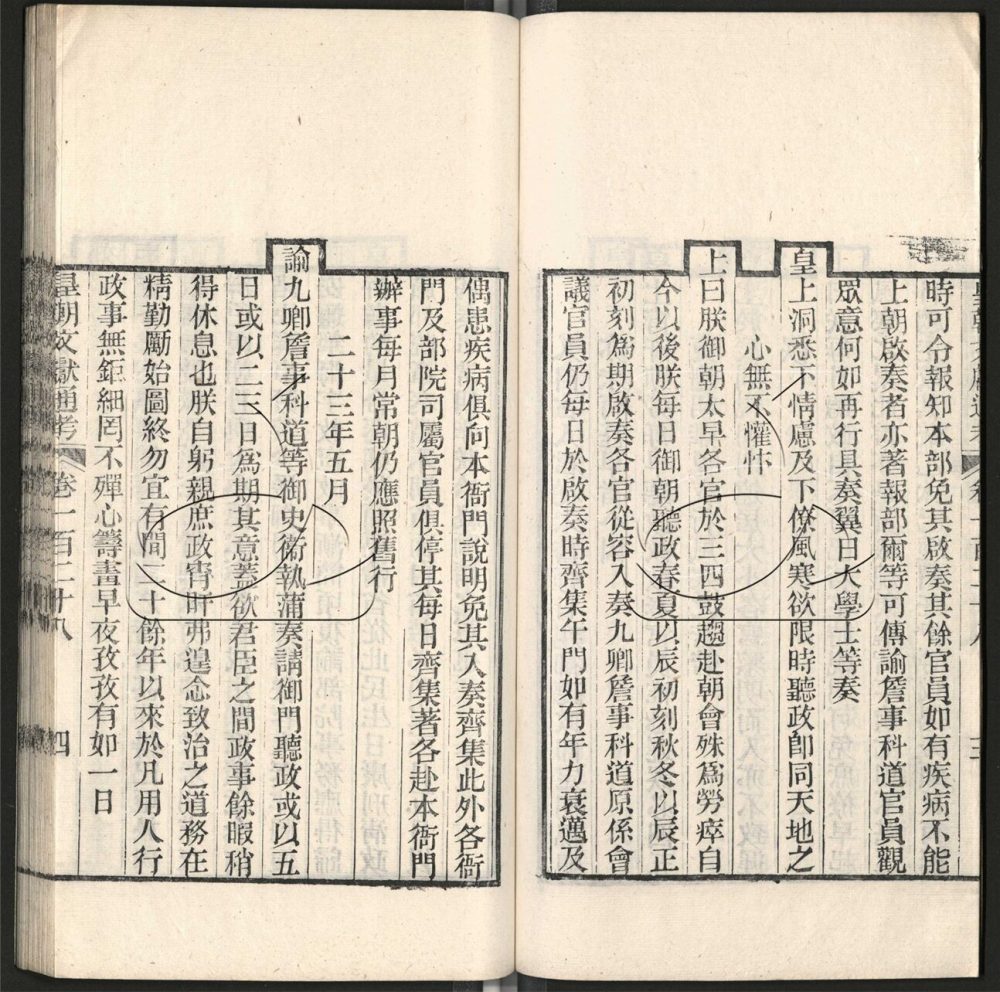 皇朝文獻通考 卷一百二十八 三
時可令報知本部免其啟奏其餘官員如有疾病不能
上朝啟奏者亦著報部爾等可傳諭詹事科道官員觀
眾意何如再行具奏翼日大學士等奏
皇上洞悉下情慮及下僚風寒欲限時聽政卽同天地之
心無不懽忭
上曰朕御朝太早各官於三四鼓趨赴朝會殊爲勞瘁自
今以後朕每日御朝聽政春夏以辰初刻秋冬以辰正
初刻爲期啟奏各官從容入奏九卿詹事科道原係會
議官員仍每日於啟奏時齊集午門如有年力衰邁及
偶患疾病俱向本衙門說明免其入奏齊集此外各衙
門及部院司屬官員俱停其每日齊集著各赴本衙門
辦事每月常朝仍應照舊行
二十三年五月
諭九卿詹事科道等御史衞執蒲奏請御門聽政或以五
日或以二三日爲期其意蓋欲君臣之間政事餘暇稍
得休息也朕自躬親庶政宵旰弗遑念致治之道務在
精勤勵始圖終勿宜有間二十餘年以來於凡用人行
政事無鉅細罔不殫心籌畫早夜孜孜有如一日
皇朝文獻通考 卷一百二十八 四